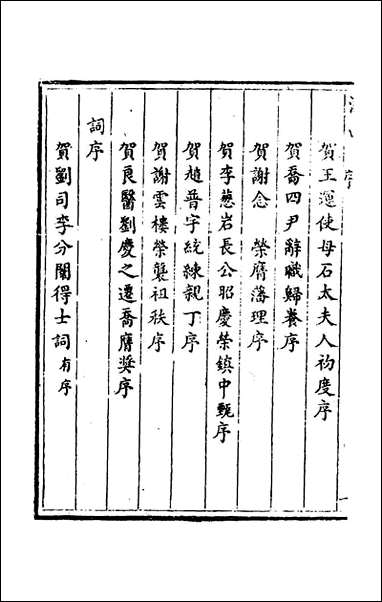 賀王運使母石太夫人初度序
賀喬四尹辭職歸養序
賀謝念　榮膺藩理序
賀李葱岩長公昭慶榮鎮中甄序
賀趙普宇統練親丁序
賀謝雲樓榮襲祖秩序
賀良醫劉慶之遷喬膺奬序
詞序
賀劉司李分闈得士詞有序